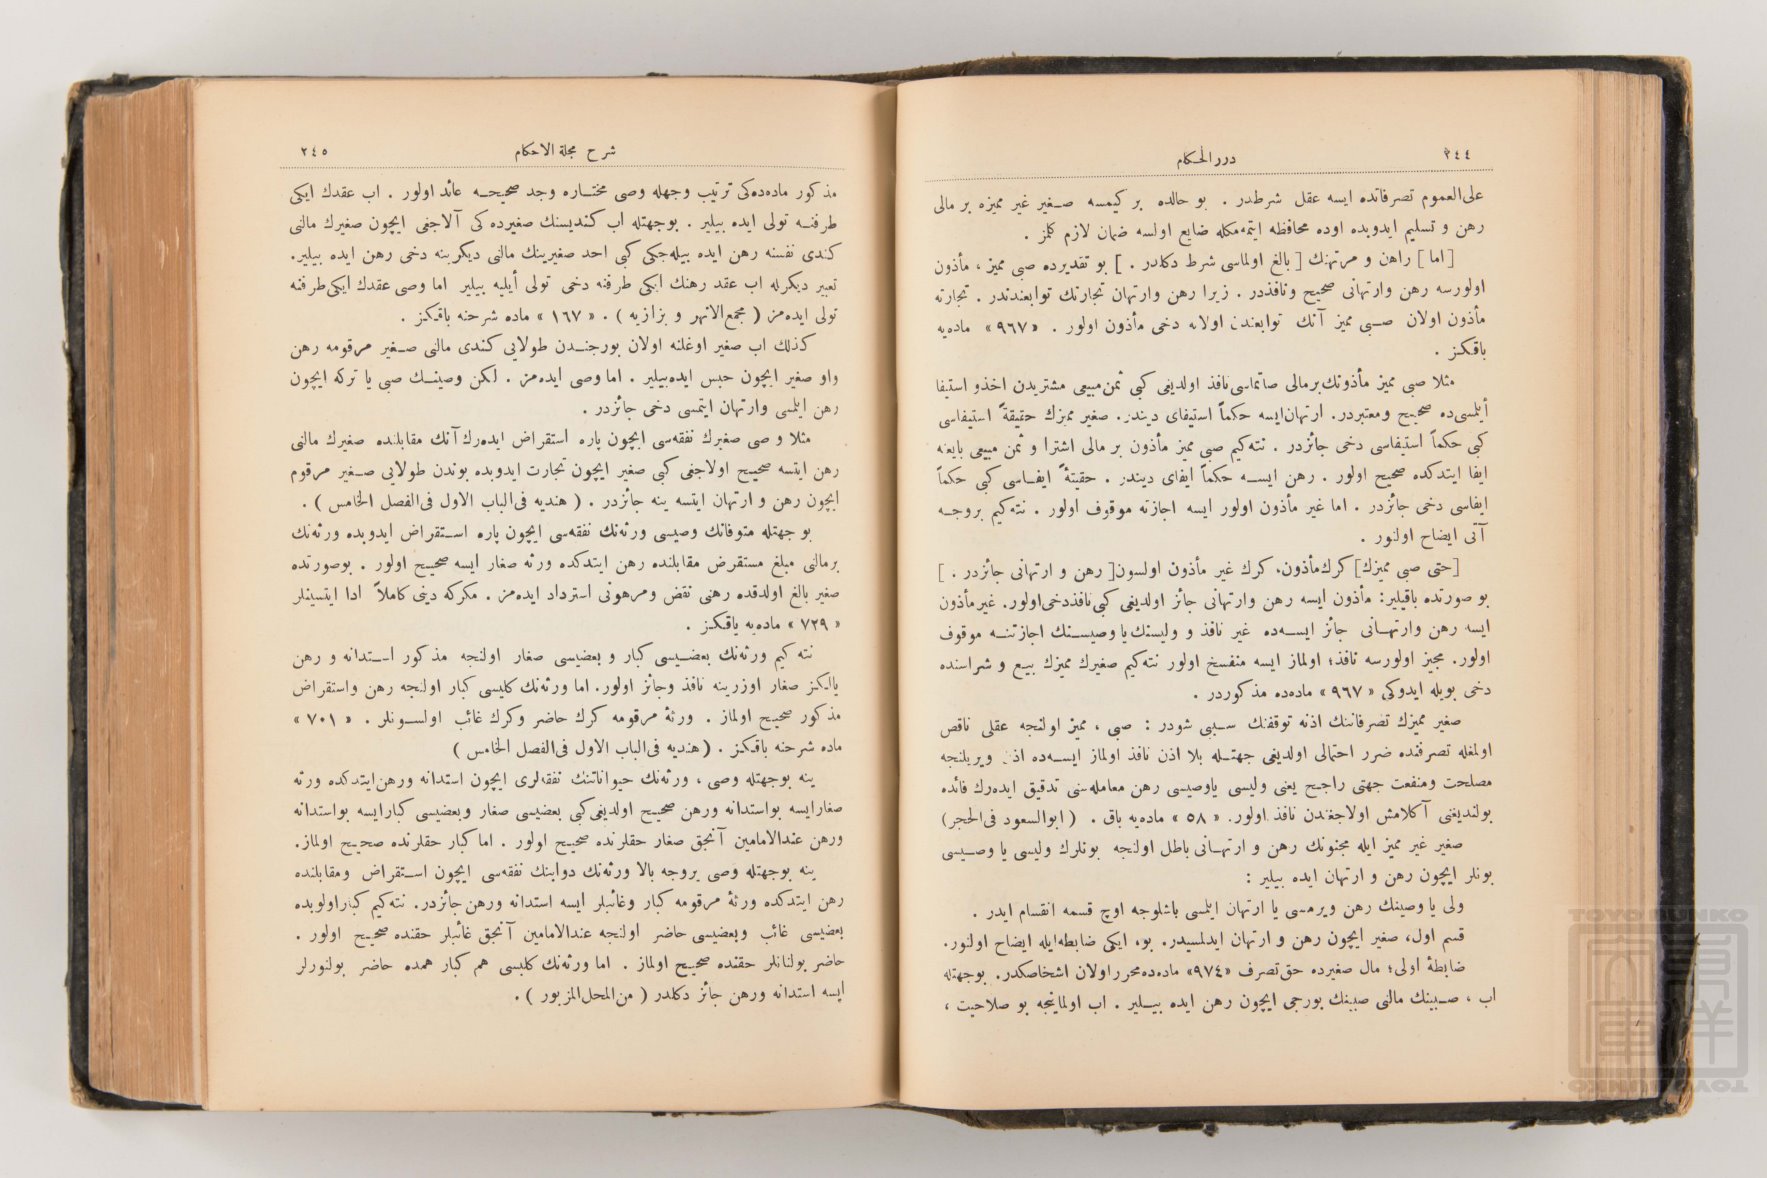 ٢٤٤
درر الحكام
على العموم تصرفاتده ايسه عقل شرطدر . بو حالده بر كيمسه صغير غير مميزه بر مالى
رهن و تسليم ايدوبده اوده محافظه ايتمه‌مكله ضايع اولسه ضمان لازم كلز .
[اما] راهن و مرتهنك [بالغ اولماسى شرط دكلدر .] بو تقديرده صبى مميز ، مأذون
اولورسه رهن وارتهانى صحيح ونافذدر . زيرا رهن وارتهان تجارتك توابعندندر . تجارته
مأذون اولان صبى مميز آنك توابعندن اولانه دخى مأذون اولور . «٩٦٧» ماده‌يه
باقكز .
مثلا صبى مميز مأذونك برمالى صاتماسى نافذ اولديغى كبى ثمن مبيعى مشتريدن اخذو استيفا
أيلمسى‌ده صحيح ومعتبردر. ارتهان‌ايسه حكماً استيفاى ديندر. صغير مميزك حقيقةً استيفاسى
كبى حكماً استيفاسى دخى جائزدر . نته‌كيم صبى مميز مأذون بر مالى اشترا و ثمن مبيعى بايعنه
ايفا ايتدكده صحيح اولور . رهن ايسه حكماً ايفاى ديندر . حقيقةً ايفاسى كبى حكماً
ايفاسى دخى جائزدر . اما غير مأذون اولور ايسه اجازته موقوف اولور . نته‌كيم بروجه
آتى ايضاح اولنور .
[حتى صبى مميزك] كرك‌مأذون، كرك غير مأذون اولسون [رهن و ارتهانى جائزدر .]
بو صورتده باقيلير: مأذون ايسه رهن وارتهانى جائز اولديغى كبى نافذدخى‌اولور. غيرمأذون
ايسه رهن وارتهانى جائز ايسه‌ده غير نافذ و وليسنك‌يا وصيسنك اجازتنه موقوف
اولور. مجيز اولورسه نافذ؛ اولماز ايسه منفسخ اولور نته‌كيم صغيرك مميزك بيع و شراسنده
دخى بويله ايدوكى «٩٦٧» ماده‌ده مذكوردر .
صغير مميزك تصرفاتنك اذنه توقفنك سببى شودر : صبى ، مميز اولنجه عقلى ناقص
اولمغله تصرفنده ضرر احتمالى اولديغى جهتله بلا اذن نافذ اولماز ايسه‌ده اذن ويريلنجه
مصلحت ومنفعت جهتى راجح يعنى وليسى ياوصيسى رهن معامله‌سنى تدقيق ايده‌رك فائده
بولنديغنى آكلامش اولاجغندن نافذ اولور. «٥٨» ماده‌يه باق . (ابوالسعود فى‌الحجر)
صغير غير مميز ايله مجنونك رهن و ارتهانى باطل اولنجه بونلرك وليسى يا وصيسى
بونلر ايچون رهن و ارتهان ايده بيلير :
ولى يا وصينك رهن ويرمسى يا ارتهان ايلمسى باشلوجه اوچ قسمه انقسام ايدر .
قسم اول، صغير ايچون رهن و ارتهان ايدلمسيدر. بو، ايكى ضابطه‌ايله ايضاح اولنور.
ضابطۀ اولى؛ مال صغيرده حق‌تصرف «٩٧٤» ماده‌ده محرراولان اشخاصكدر. بوجهتله
اب ، صبينك مالنى صبينك بورجى ايچون رهن ايده بيلير . اب اولماينجه بو صلاحيت ،
شرح مجلة الاحكام
٢٤٥
مذكور ماده‌ده‌كى ترتيب وجهله وصى مختاره وجد صحيحه عائد اولور . اب عقدك ايكى
طرفنه تولى ايده بيلير . بوجهتله اب كنديسنك صغيرده كى آلاجغى ايچون صغيرك مالنى
كندى نفسنه رهن ايده بيله‌جكى كبى احد صغيرينك مالنى ديكرينه دخى رهن ايده بيلير.
تعبير ديكرله اب عقد رهنك ايكى طرفنه دخى تولى أيليه بيلير اما وصى عقدك ايكى‌طرفنه
تولى ايده‌مز (مجمع‌الانهر و بزازيه) . «١٦٧» ماده شرحنه باقكز .
كذلك اب صغير اوغلنه اولان بورجندن طولايى كندى مالنى صغير مرقومه رهن
واو صغير ايچون حبس ايده‌بيلير . اما وصى ايده‌مز . لكن وصينك صبى يا تركه ايچون
رهن ايلمسى وارتهان ايتمسى دخى جائزدر .
مثلا وصى صغيرك نفقه‌سى ايچون پاره استقراض ايده‌رك آنك مقابلنده صغيرك مالنى
رهن ايتسه صحيح اولاجغى كبى صغير ايچون تجارت ايدوبده بوندن طولايى صغير مرقوم
ايچون رهن و ارتهان ايتسه ينه جائزدر . (هنديه فى‌الباب الاول فى‌الفصل الخامس) .
بو جهتله متوفانك وصيسى ورثه‌نك نفقه‌سى ايچون پاره استقراض ايدوبده ورثه‌نك
برمالنى مبلغ مستقرض مقابلنده رهن ايتدكده ورثه صغار ايسه صحيح اولور . بوصورتده
صغير بالغ اولدقده رهنى نقض ومرهونى استرداد ايده‌مز . مكركه دينى كاملاً ادا ايتسينلر
«٧٢٩» ماده‌يه باقكز .
نته كيم ورثه‌نك بعضيسى كبار و بعضيسى صغار اولنجه مذكور استدانه و رهن
يالكز صغار اوزرينه نافذ وجائز اولور. اما ورثه‌نك كليسى كبار اولنجه رهن واستقراض
مذكور صحيح اولماز . ورثۀ مرقومه كرك حاضر وكرك غائب اولسونلر . «٧٠١»
ماده شرحنه باقكز . (هنديه فى‌الباب الاول فى‌الفصل الخامس)
ينه بوجهتله وصى ، ورثه‌نك حيواناتنك نفقه‌لرى ايچون استدانه ورهن‌ايتدكده ورثه
صغارايسه بواستدانه ورهن صحيح اولديغى‌كبى بعضيسى صغار وبعضيسى كبارايسه بواستدانه
ورهن عندالامامين آنجق صغار حقلرنده صحيح اولور . اما كبار حقلرنده صحيح اولماز.
ينه بوجهتله وصى بروجه بالا ورثه‌نك دوابنك نفقه‌سى ايچون استقراض ومقابلنده
رهن ايتدكده ورثۀ مرقومه كبار وغائبلر ايسه استدانه ورهن‌جائزدر. نته‌كيم كبار‌اولوبده
بعضيسى غائب وبعضيسى حاضر اولنجه عندالامامين آنجق غائبلر حقنده صحيح اولور .
حاضر بولنانلر حقنده صحيح اولماز . اما ورثه‌نك كليسى هم كبار همده حاضر بولنورلر
ايسه استدانه ورهن جائز دكلدر (من‌المحل‌المزبور) .
TOYO BUNKO